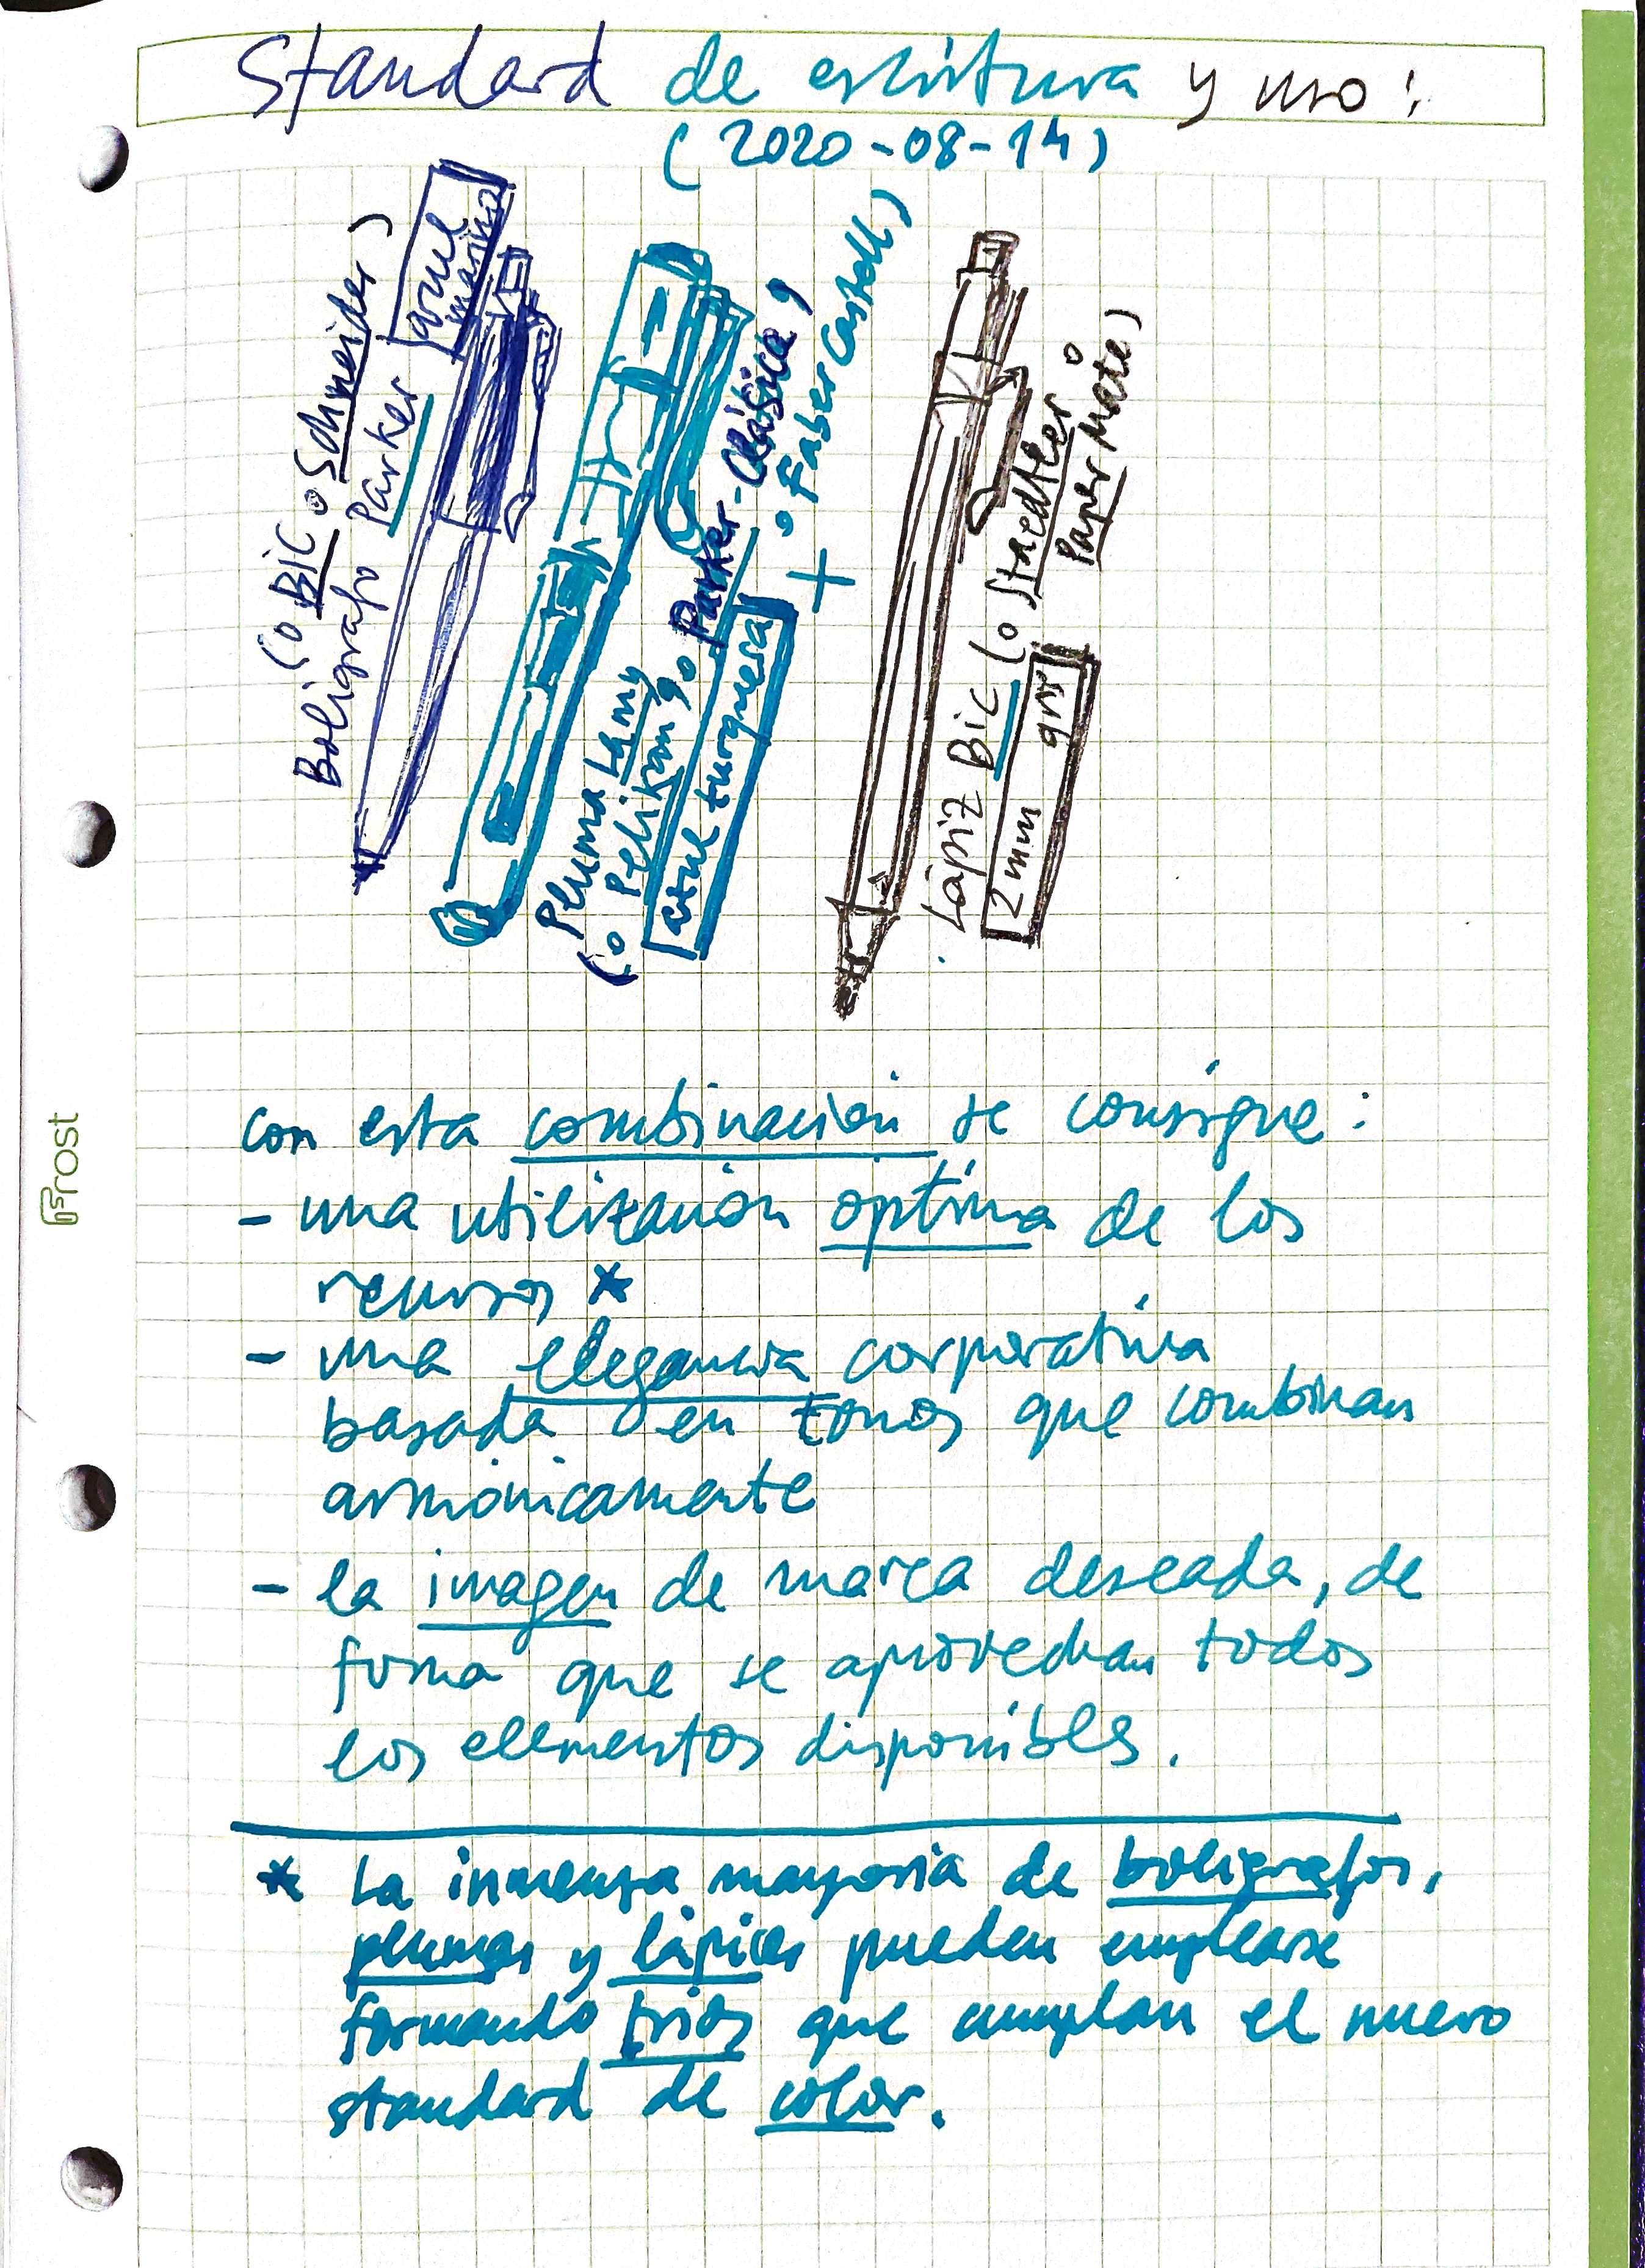 Standard de escritura y uso:
(2020-08-14)
(o BIC o Schneider)
Bolígrafo Parker
azul
marino
Pluma Lamy
(o Pelikan, o Parker-Clásica,
o Faber Castell)
+
azul turquesa
Lápiz Bic (o Staedtler o
Paper Mate)
2 mm gris
con esta combinación se consigue:
- una utilización óptima de los
recursos *
- una elegancia corporativa
basada en tonos que combinan
armónicamente
- la imagen de marca deseada, de
forma que se aprovechan todos
los elementos disponibles.
* La inmensa mayoría de bolígrafos,
plumas y lápices pueden emplearse
formando tríos que cumplan el nuevo
standard de color.
Frost